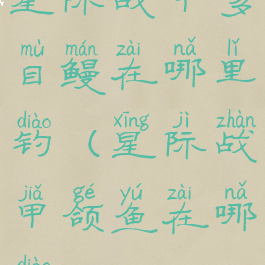 星际战甲多
mù mán zài nǎ lǐ
目鳗在哪里
diào xīng jì zhàn
钓(星际战
jiǎ gé yú zài nǎ
甲颌鱼在哪
diào